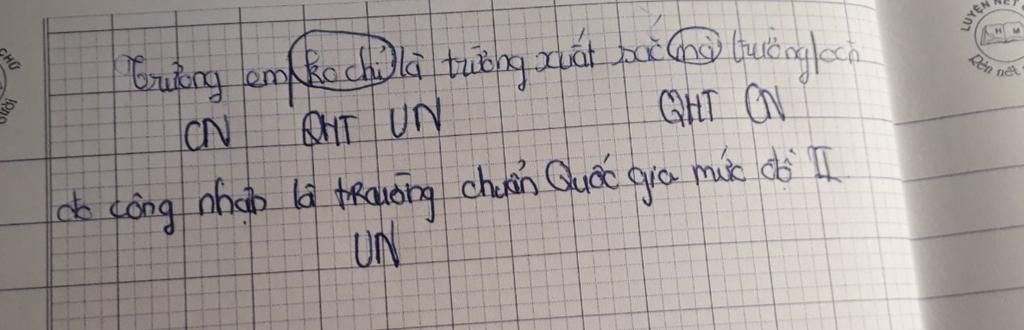 Trường em ko chỉ là trường xuất sắc mà trường còn
CN QHT VN QHT CN
đc công nhận là trường chuẩn Quốc gia mức độ II
VN
LUYỆN NÉT
Rèn nét